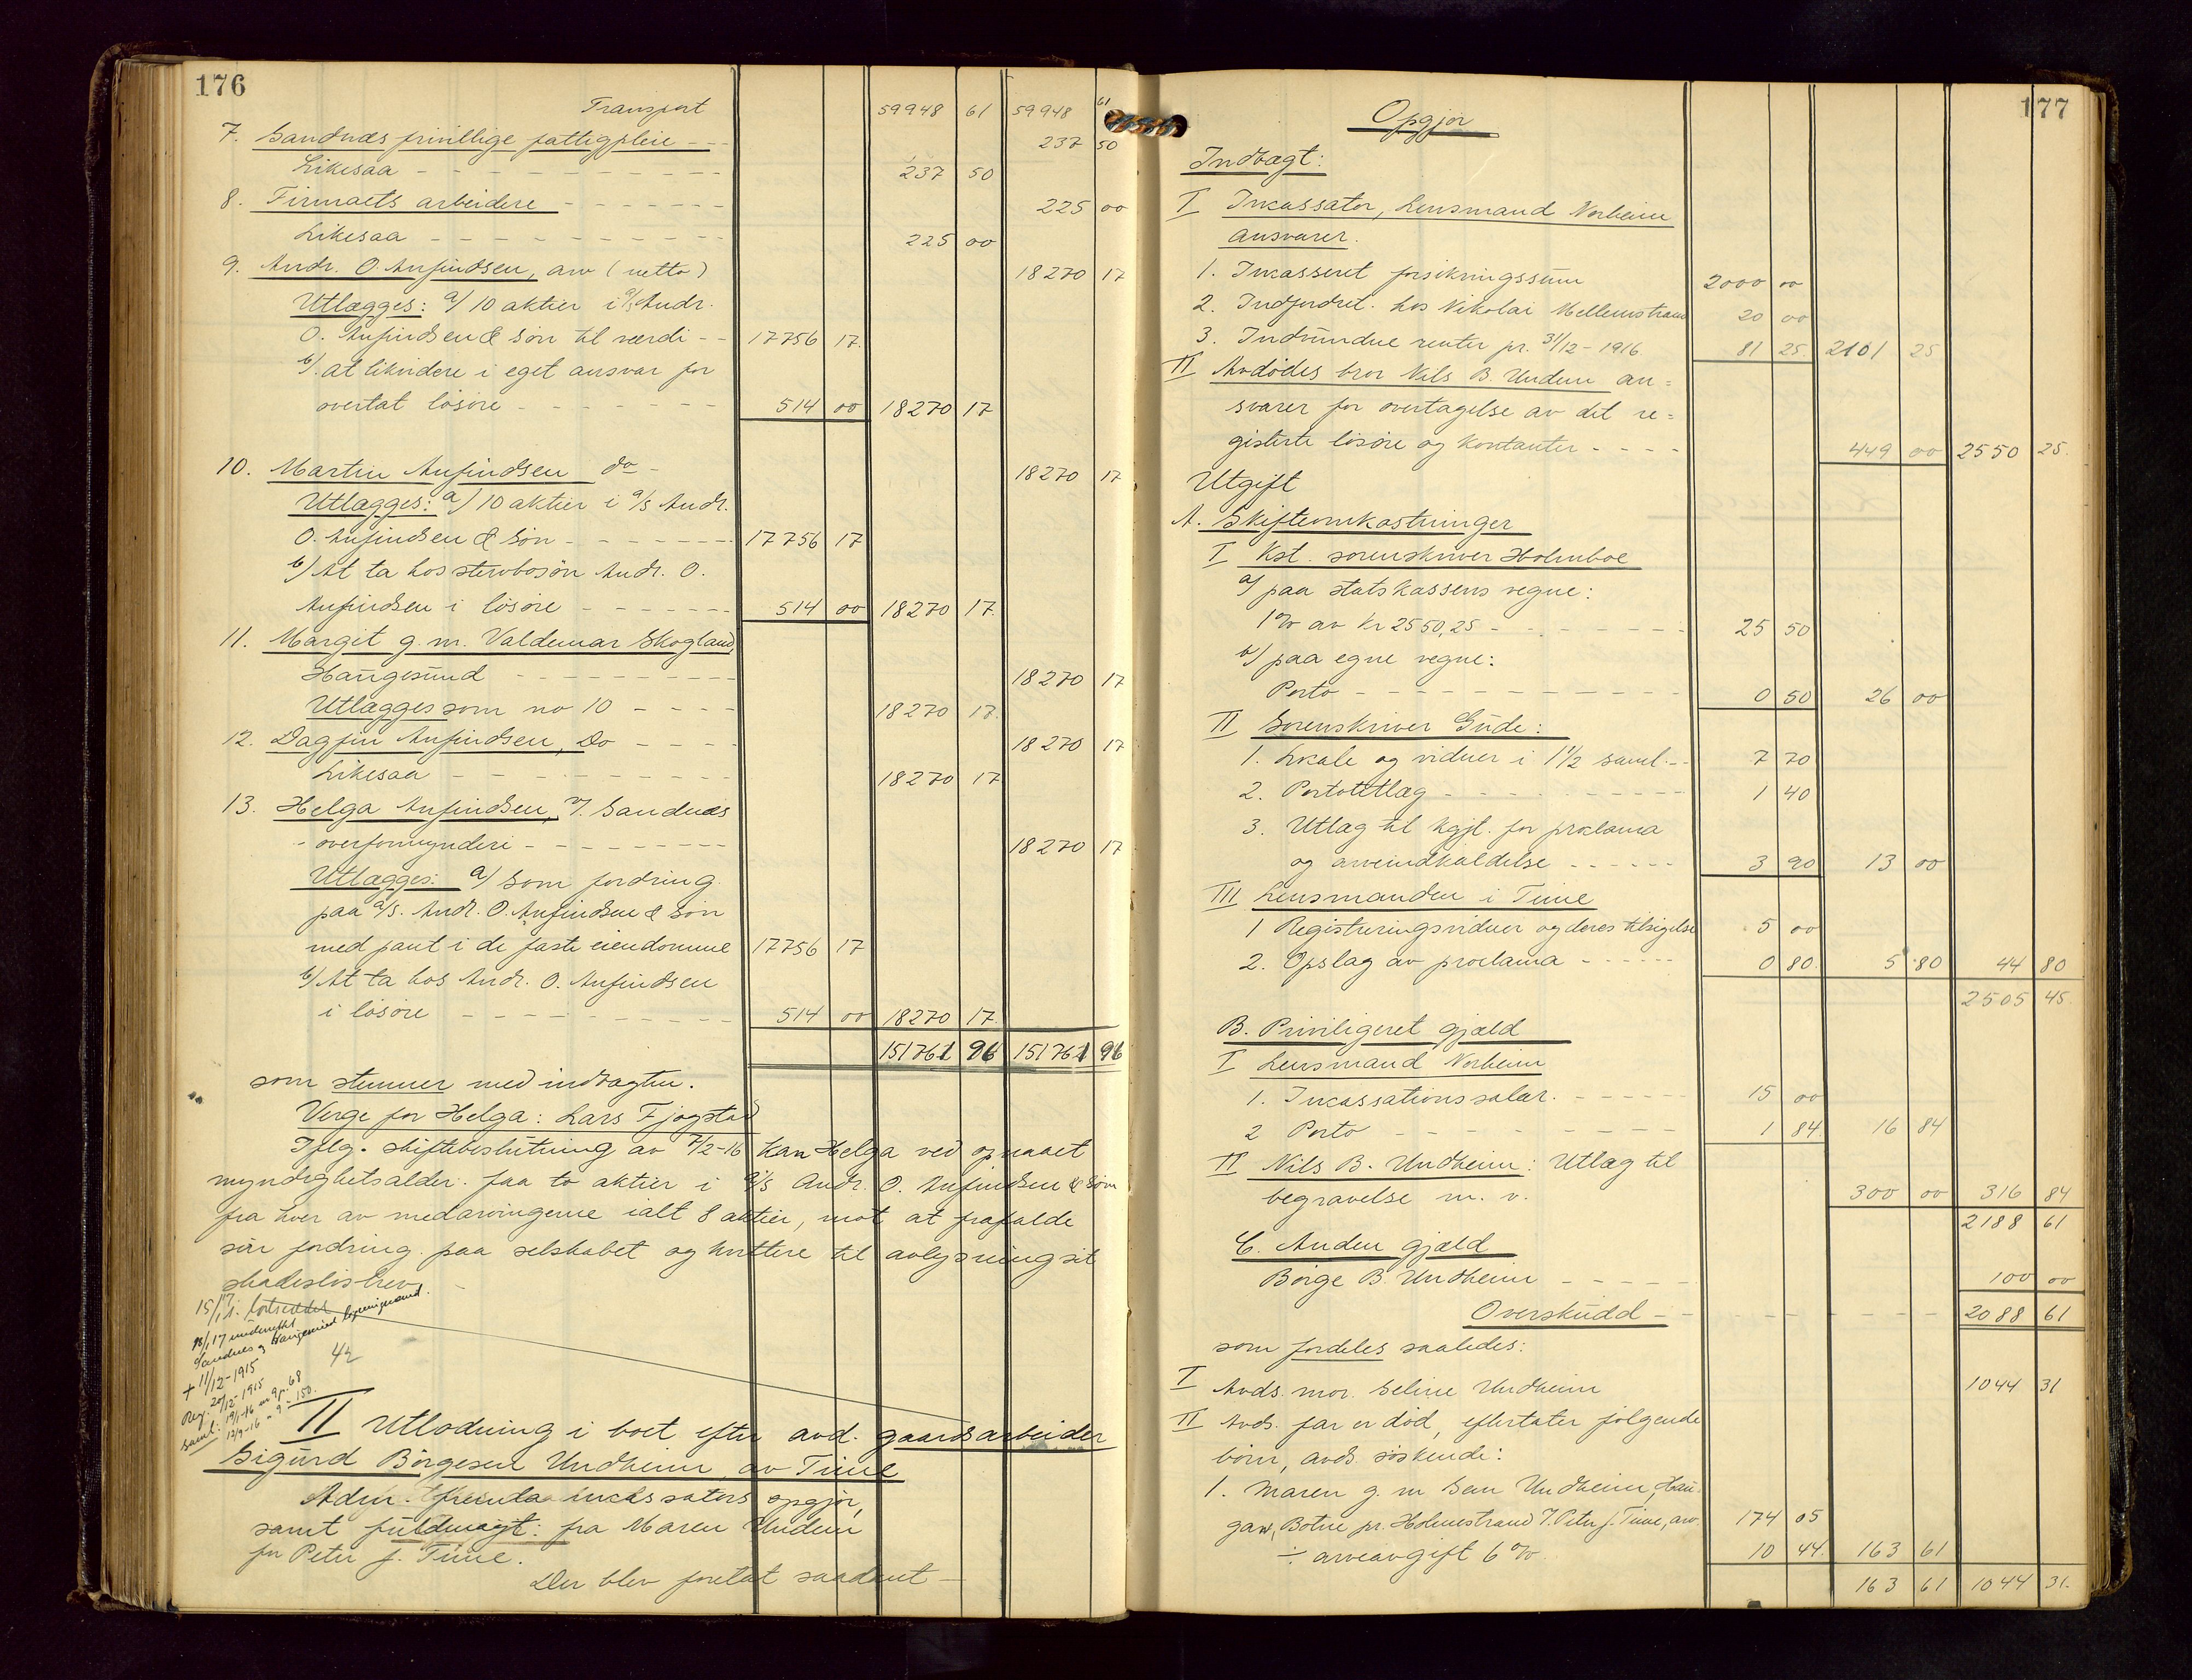 176
Transport 59948 61 59948 61
7. Sandnæs frivillige fattigpleie - - 237 50
Likesaa - - - - - - - - - - 237 50
8. Firmaets arbeidere - - - - - - - 225 00
Likesaa - - - - - - - - - - 225 00
9. Andr. O. Anfindsen, arv (netto) 18270 17
Utlægges: a/ 10 aktier i a/s Andr.
O. Anfindsen & Søn til værdi - - 17756 17.
b/. at likvidere i eget ansvar for
overtat løsøre - - - - - - - 514 00 18270 17
10. Martin Anfindsen do - 18270 17
Utlægges: a/ 10 aktier i a/s Andr.
O. Anfindsen & Søn - - - - - - - 17756 17
b/ At ta hos stervbosøn Andr. O.
Anfindsen i løsøre - - - - - - - 514 00 18270 17.
11. Margit g. m. Valdemar Skogland,
Haugesund - - - - - - - - - - 18270 17
Utlægges som no 10 - - - - 18270 17.
12. Dagfin Anfindsen, Do - - - - 18270 17
Likesaa - - - - - - - - - - 18270 17
13. Helga Anfindsen, v/. Sandnæs
- overformynderi - - - - - - - - - 18270 17
Utlægges: a/ Som fordring
paa a/s. Andr. O. Anfindsen & Søn
med pant i de faste eiendomme 17756 17
b/ At ta hos Andr. O. Anfindsen
i løsøre - - - - - - - - - - 514 00 18270 17.
151761 96 151761 96
som stemmer med indtægten.
Verge for Helga: Lars Fjogstad
Iflg. skiftebeslutning av 7/2-16 kan Helga ved opnaaet
myndighetsalder. faa to aktier i a/s Andr. O. Anfindsen & Søn
fra hver av medarvingerne ialt 8 aktier, mot at frafalde
sin fordring. paa selskabet og kvittere til avlysning sit
skadesløsbrev. -
Sandnes og Haugesund
42
+ 11/12-1915
Reg. 20/12-1915
Saml: 19/1-16 en 9 p. 68
12/9-16 " 9 - 150.
II Utlodning i boet efter avd. gaardsarbeider
Sigurd Børgesen Undheim av Time
Adm. fremla incassators opgjør,
samt fuldmagt: fra Maren Undem
for Peter J. Time.
Der blev foretat saadant -
177
Opgjør
Indtægt:
I Incassator, Lensmand Norheim
ansvarer.
1. Incasseret forsikringssum 2000 00
2. Indfordret. hos Nikolai Mellemstrand 20 00
3. Indvundne renter pr. 31/12-1916 81 25. 2101 25
II Avdødes bror Nils B. Undem an=
svarer for overtagelse av det re=
gisterte løsøre og kontanter - - - - 449 00 2550 25.
Utgift
A. Skifteomkostninger
I Kst. sorenskriver Holmboe
a/ paa statskassens vegne:
1% av kr 2550,25 - - - - - - - - 25 50
b/ paa egne vegne:
Porto - - - - - - - - - - - - 0 50 26 00
II Sorenskriver Gude:
1. Lokale og vidner i 1 1/2 saml. - - 7 70
2. Portoutlæg - - - - - - - - - - 1 40
3. Utlæg til kgjt. for proclama
og arveindkaldelse - - - - - - 3 90 13 00
III Lensmanden i Time
1 Registreringsvidner og deres tilsigelse 5 00
2. Opslag av proclama - - - - - - 0 80. 5 80 44 80
2505 45.
B. Priviligeret gjæld
I Lensmand Norheim
1. Incassationssalær. - - - - - - 15 00
2 Porto - - - - - - - - - 1 84. 16 84
II Nils B. Undheim: Utlæg til
begravelse m. v. 300 00 316 84
2188 61
C. Anden gjæld
Børge B. Undheim - - - - - 100 00
Overskudd - - - - - - - - 2088 61
som fordeles saaledes:
I Avds. mor. Seline Undheim 1044 31
II Avds. far er død, eftertater følgende
børn, avds. søskende:
1. Maren g. m Sem Undheim, Hau-
gan, Botne pr. Holmestrand v. Peter J. Time, arv. 174 05
÷ arveavgift 6% 10 44. 163 61
163 61 1044 31.